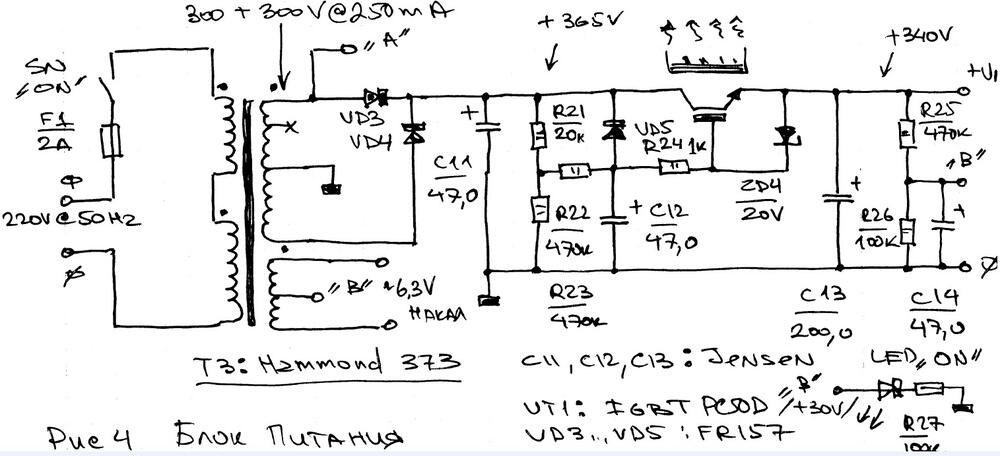 300 + 300V@250mA
"A"
+365V
+340V
+U1
SN
"ON"
F1
2A
Ф
220V@50Hz
VD3
VD4
C11
47,0
R21
20k
VD5
R24 1k
R22
470k
C12
47,0
ZD4
20V
R25
470k
"B"
R26
100k
"B" ~6,3V
НАКАЛ
R23
470k
C13
200,0
C14
47,0
T3: Hammond 373
C11, C12, C13: JENSEN
LED "ON"
"B"
/+30V/
R27
100k
VT1: IGBT PCOD
VD3.., VD5: FR157
Рис 4 Блок Питания